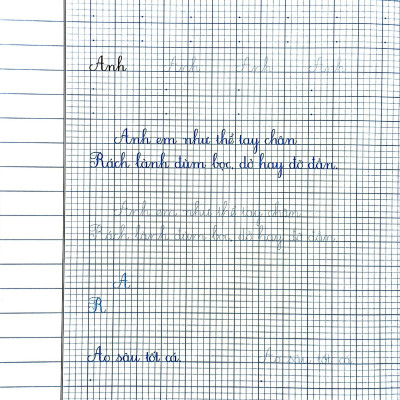 Anh Anh Anh Anh
Anh em như thể tay chân
Rách lành đùm bọc, dở hay đỡ đần.
Anh em như thể tay chân
Rách lành đùm bọc, dở hay đỡ đần.
A
R
Ao sâu tốt cá. Ao sâu tốt cá.